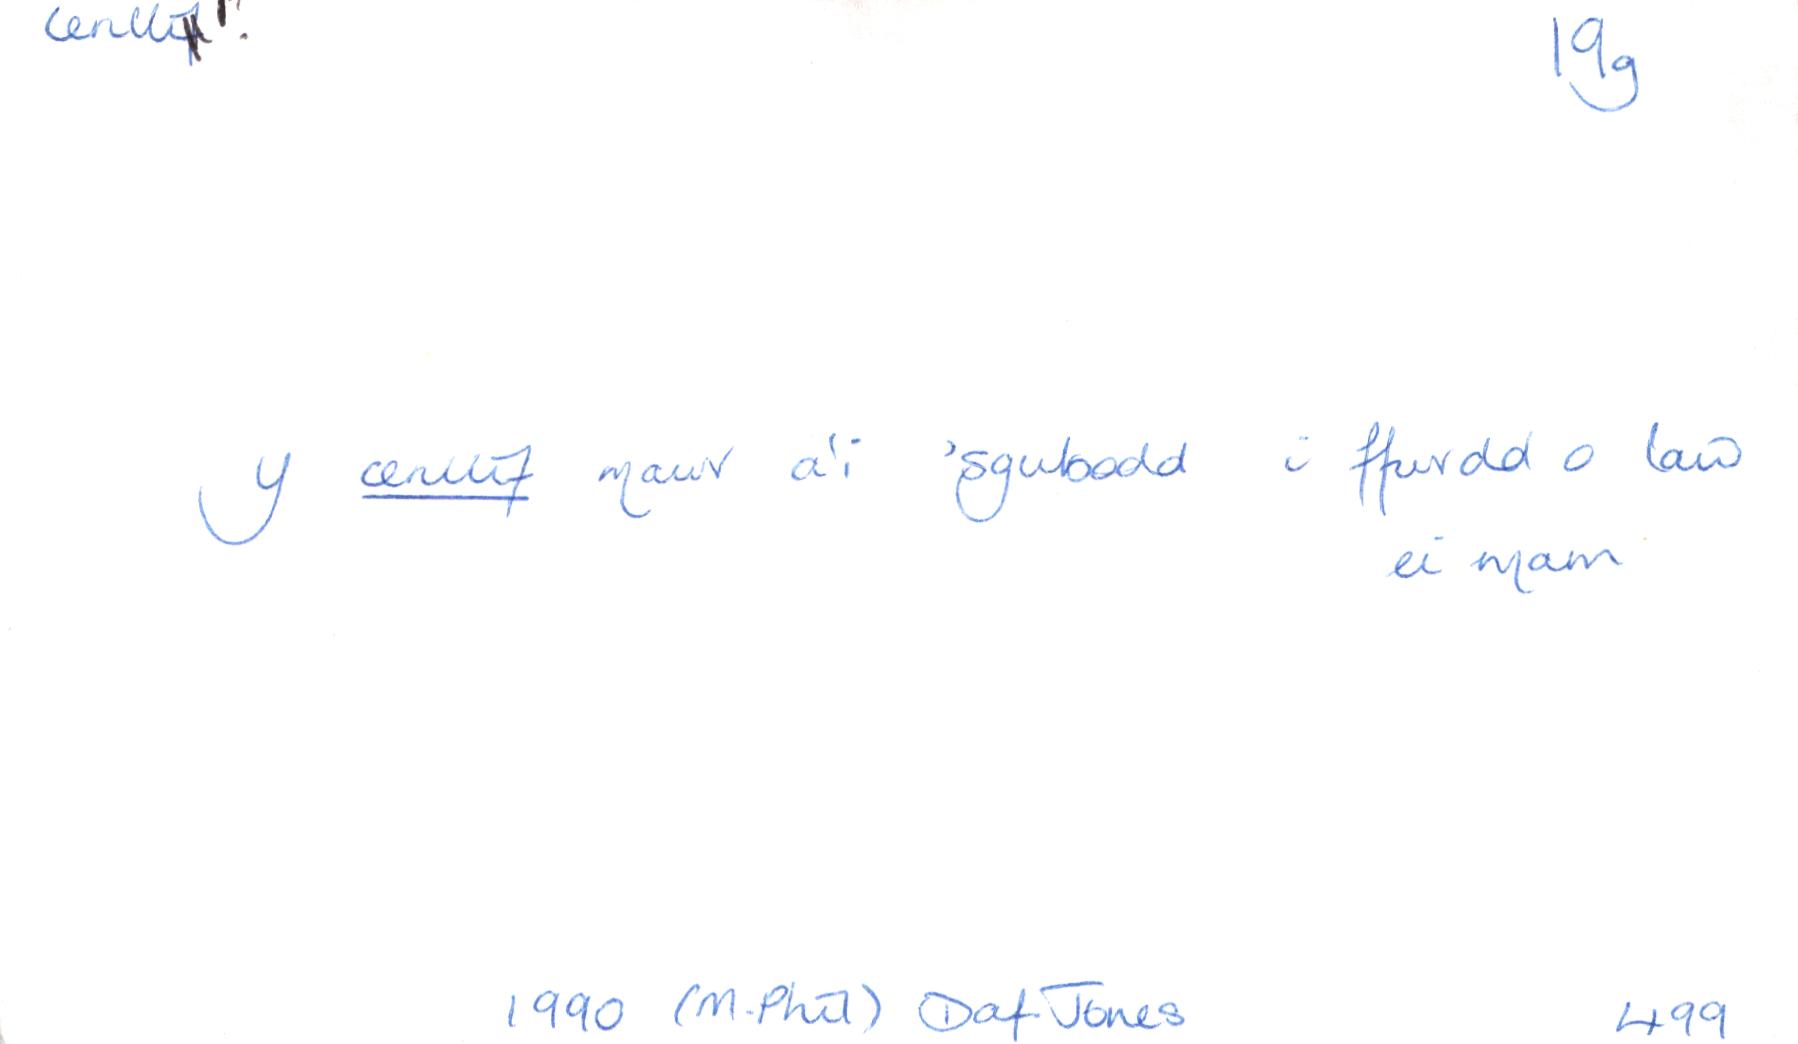 cenllif:
19g
y cenllif mawr a'i 'sgubodd i ffwrdd o law
ei mam
1990 (M.Phil) Daf Jones
499